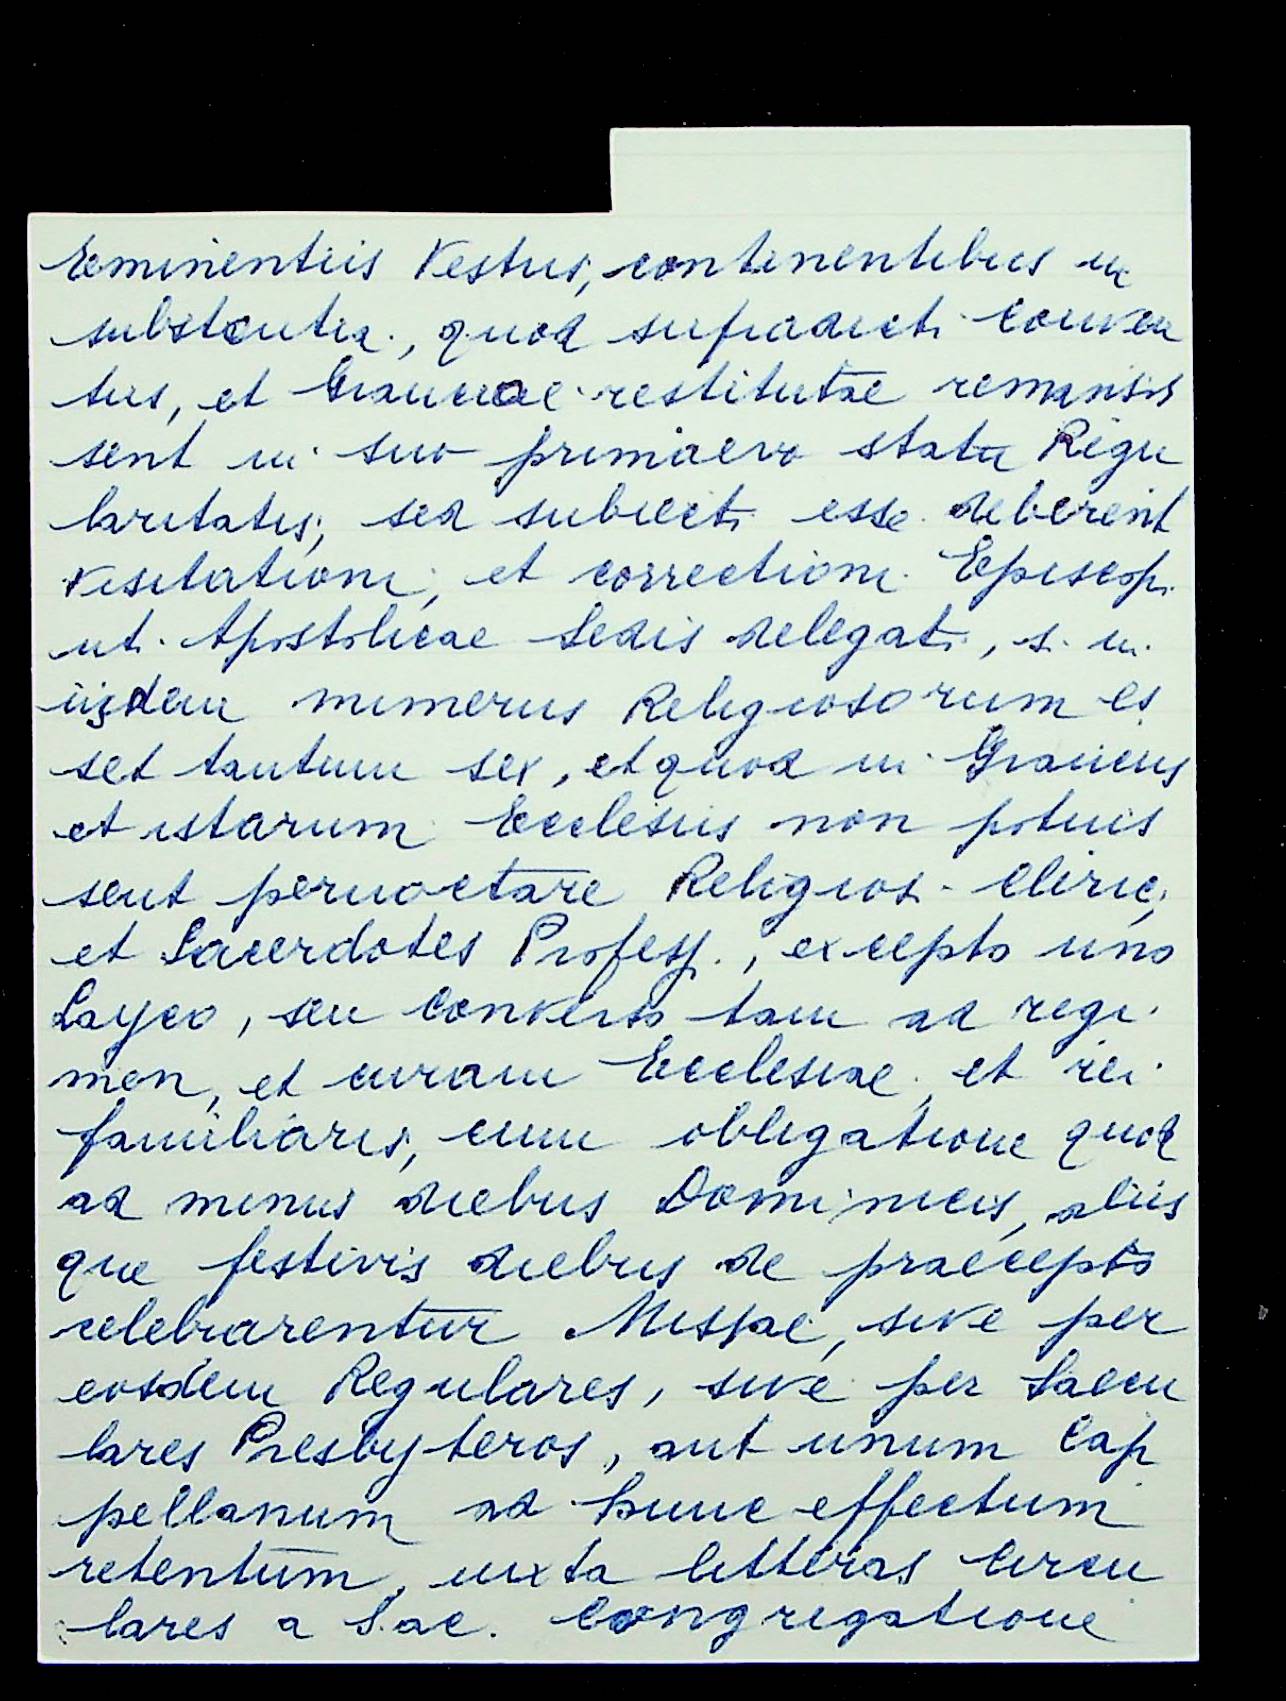 Eminentiis Vestris, continentibus in
substantia, quod supradicti Conven
tus, et Granciae restitutae remansis
sent in suo primaevo statu Regu
laritatis, sed subiecti esse deberent
visitationi, et correctioni Episcopi
uti Apostolicae Sedis delegati, si in
iisdem numerus Religiosorum es
set tantum sex, et quod in Granciis
et istarum Ecclesiis non potuis
sent pernoctare Religiosi Clirici,
et Sacerdotes Professi, excepto uno
Layco, seu Converso tam ad regi
men, et curam Ecclesiae, et rei
familiaris, cum obligatione quod
ad minus diebus Dominicis, aliis
que festivis diebus de praecepto
celebrarentur Missae, sive per
eosdem Regulares, sive per Saecu
lares Presbyteros, aut unum Cap
pellanum ad hunc effectum
retentum, iuxta litteras circu
lares a Sac. Congregatione